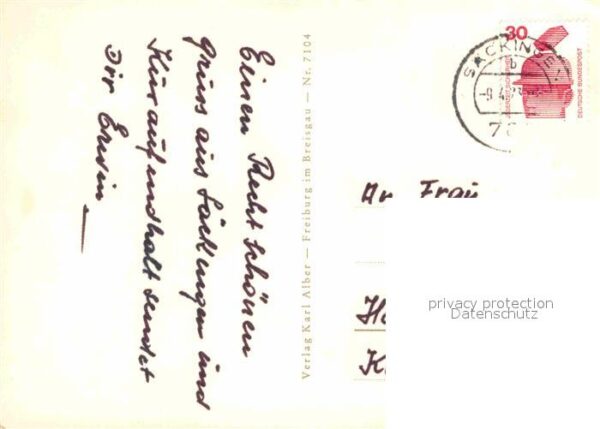 Einen Recht schönen
gruss aus Säckingen und
Kuraufendhalt sendet
Dir Erwin
Verlag Karl Alber — Freiburg im Breisgau — Nr. 7104
30
DEUTSCHE BUNDESPOST
SÄCKINGEN
b
An Frau
privacy protection
Datenschutz